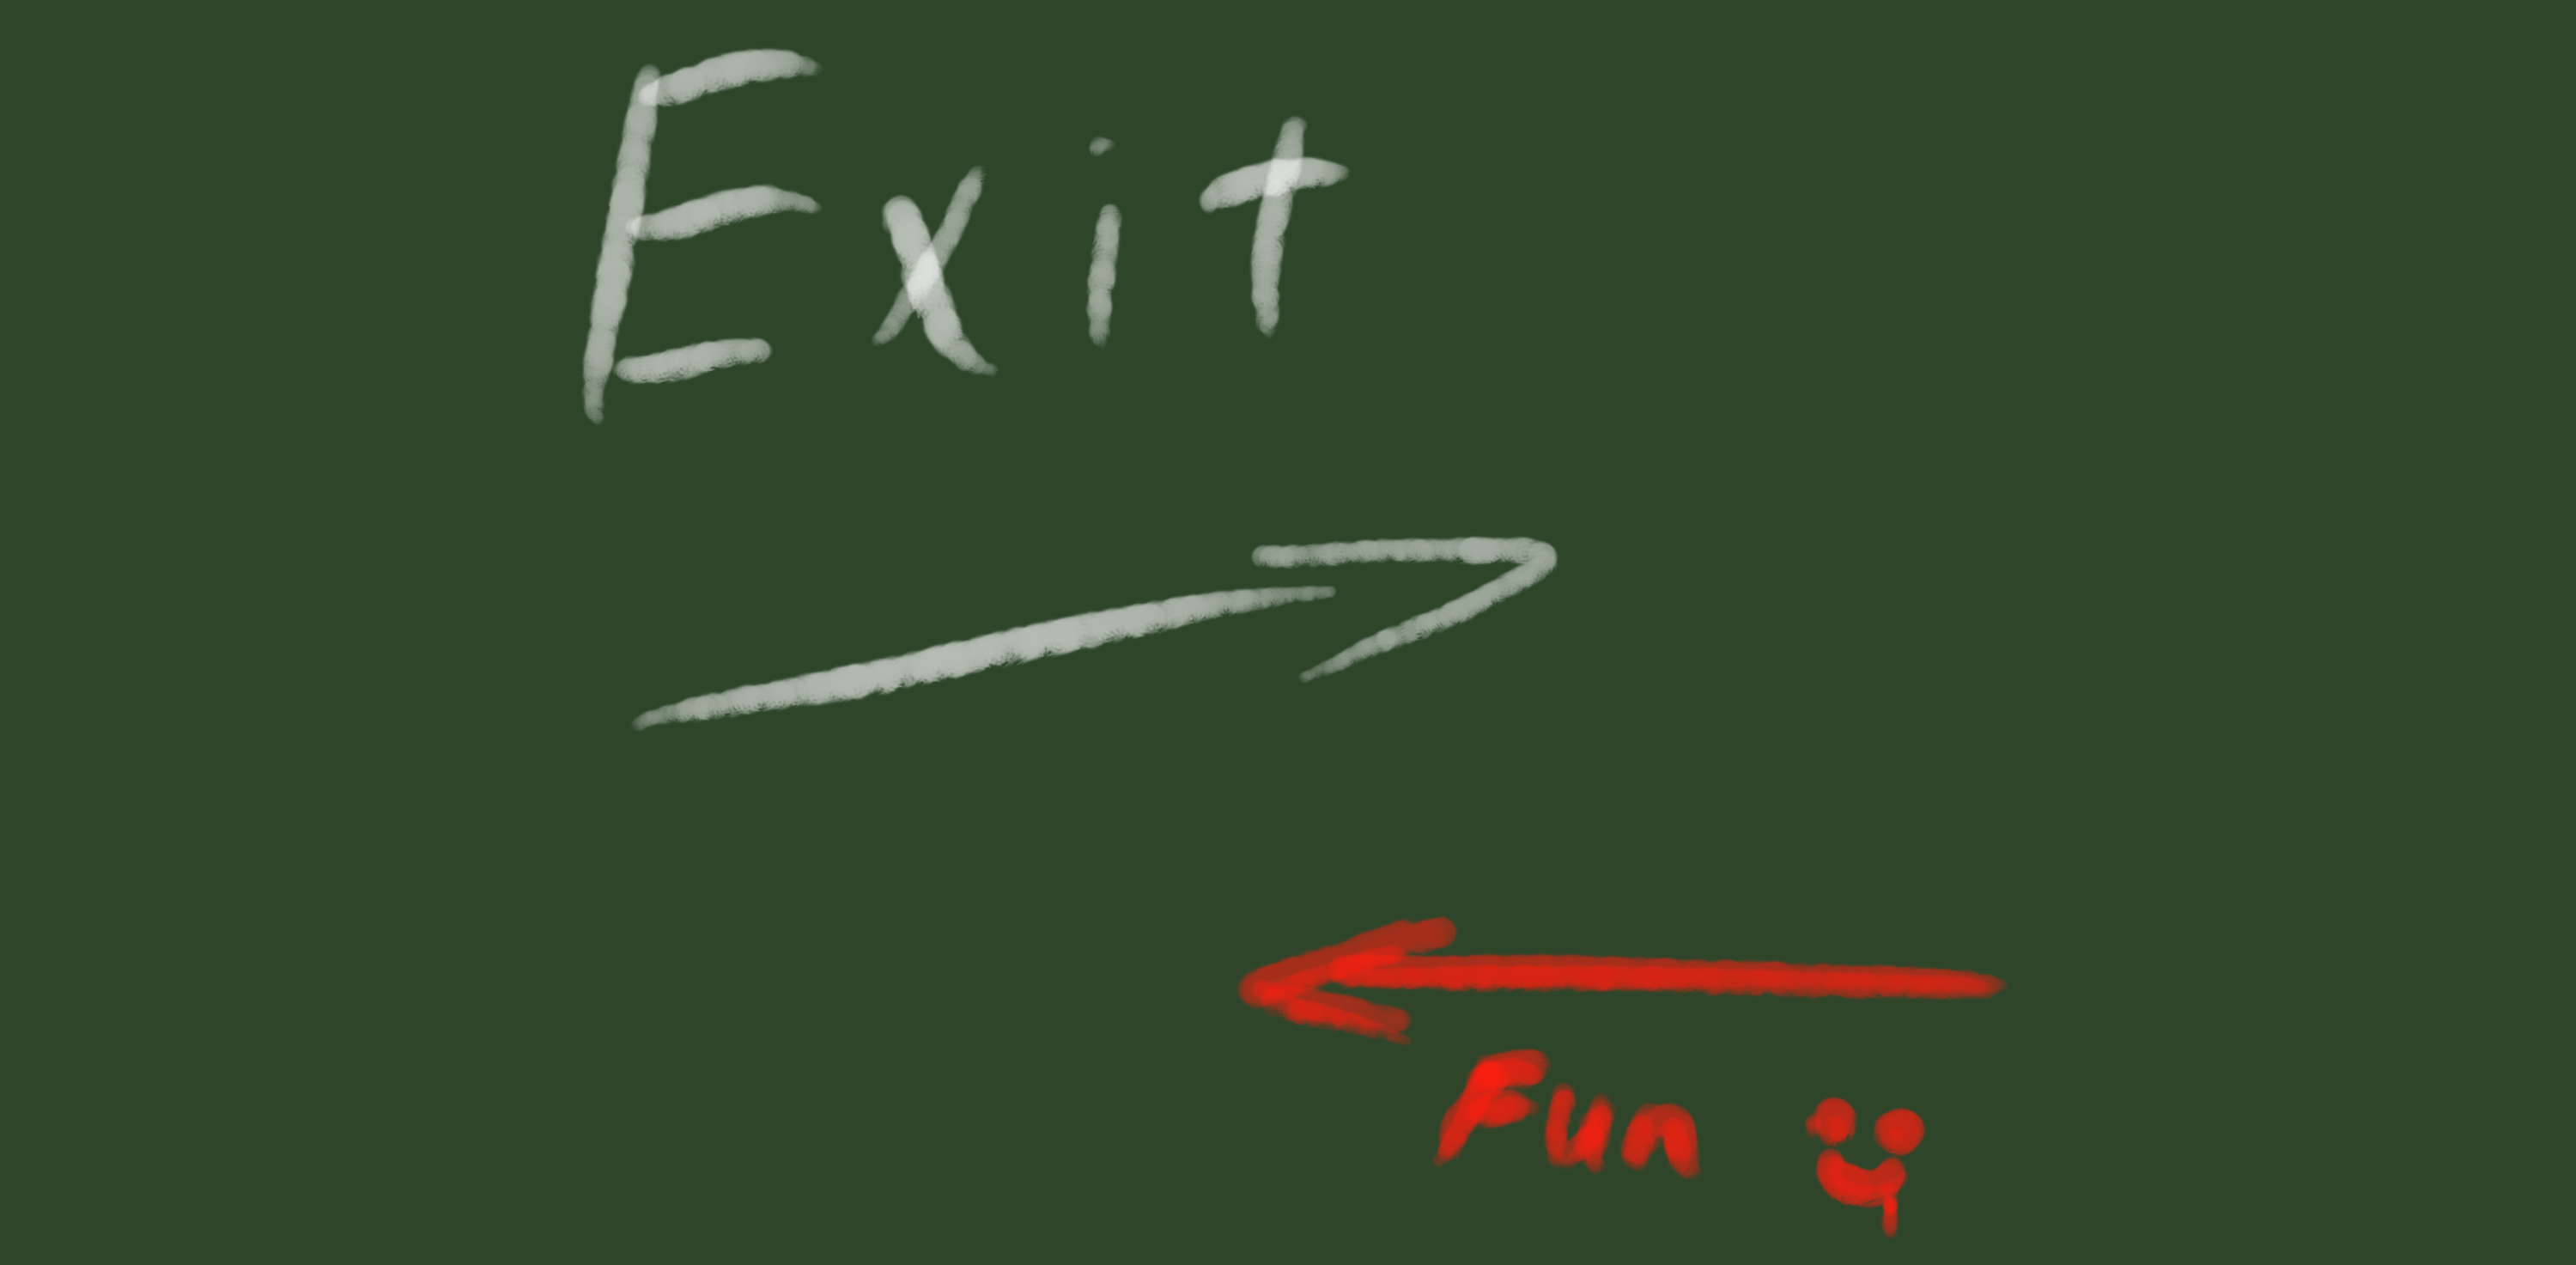 Exit
Fun